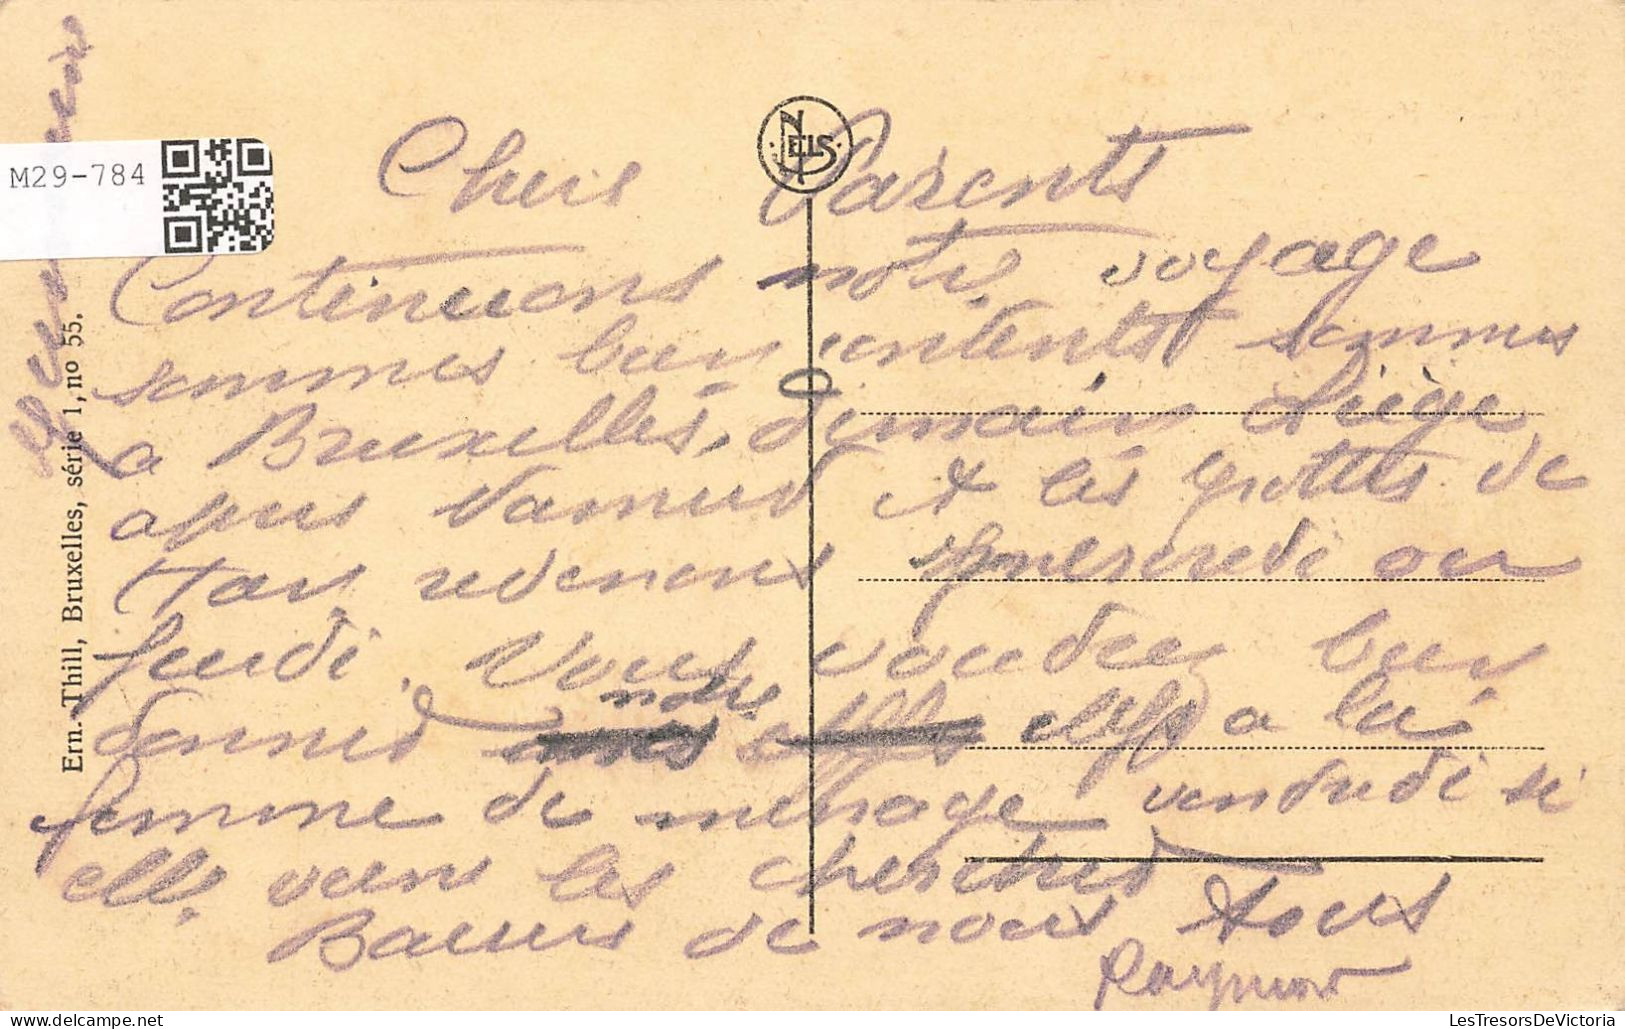 M29-784
NELS
Ern. Thill, Bruxelles, série 1, nº 55.
Chers Parents
Continuons notre voyage
sommes bien contents sommes
a Bruxelles, demain Liège
apres Namur et les grottes de
Han revenons mercredi ou
jeudi. Vous voudrez bien
donner nos clefs a la
femme de ménage vendredi si
elle viens les chercher
Baisers de nous tous
Raymond
LesTresorsDeVictoria